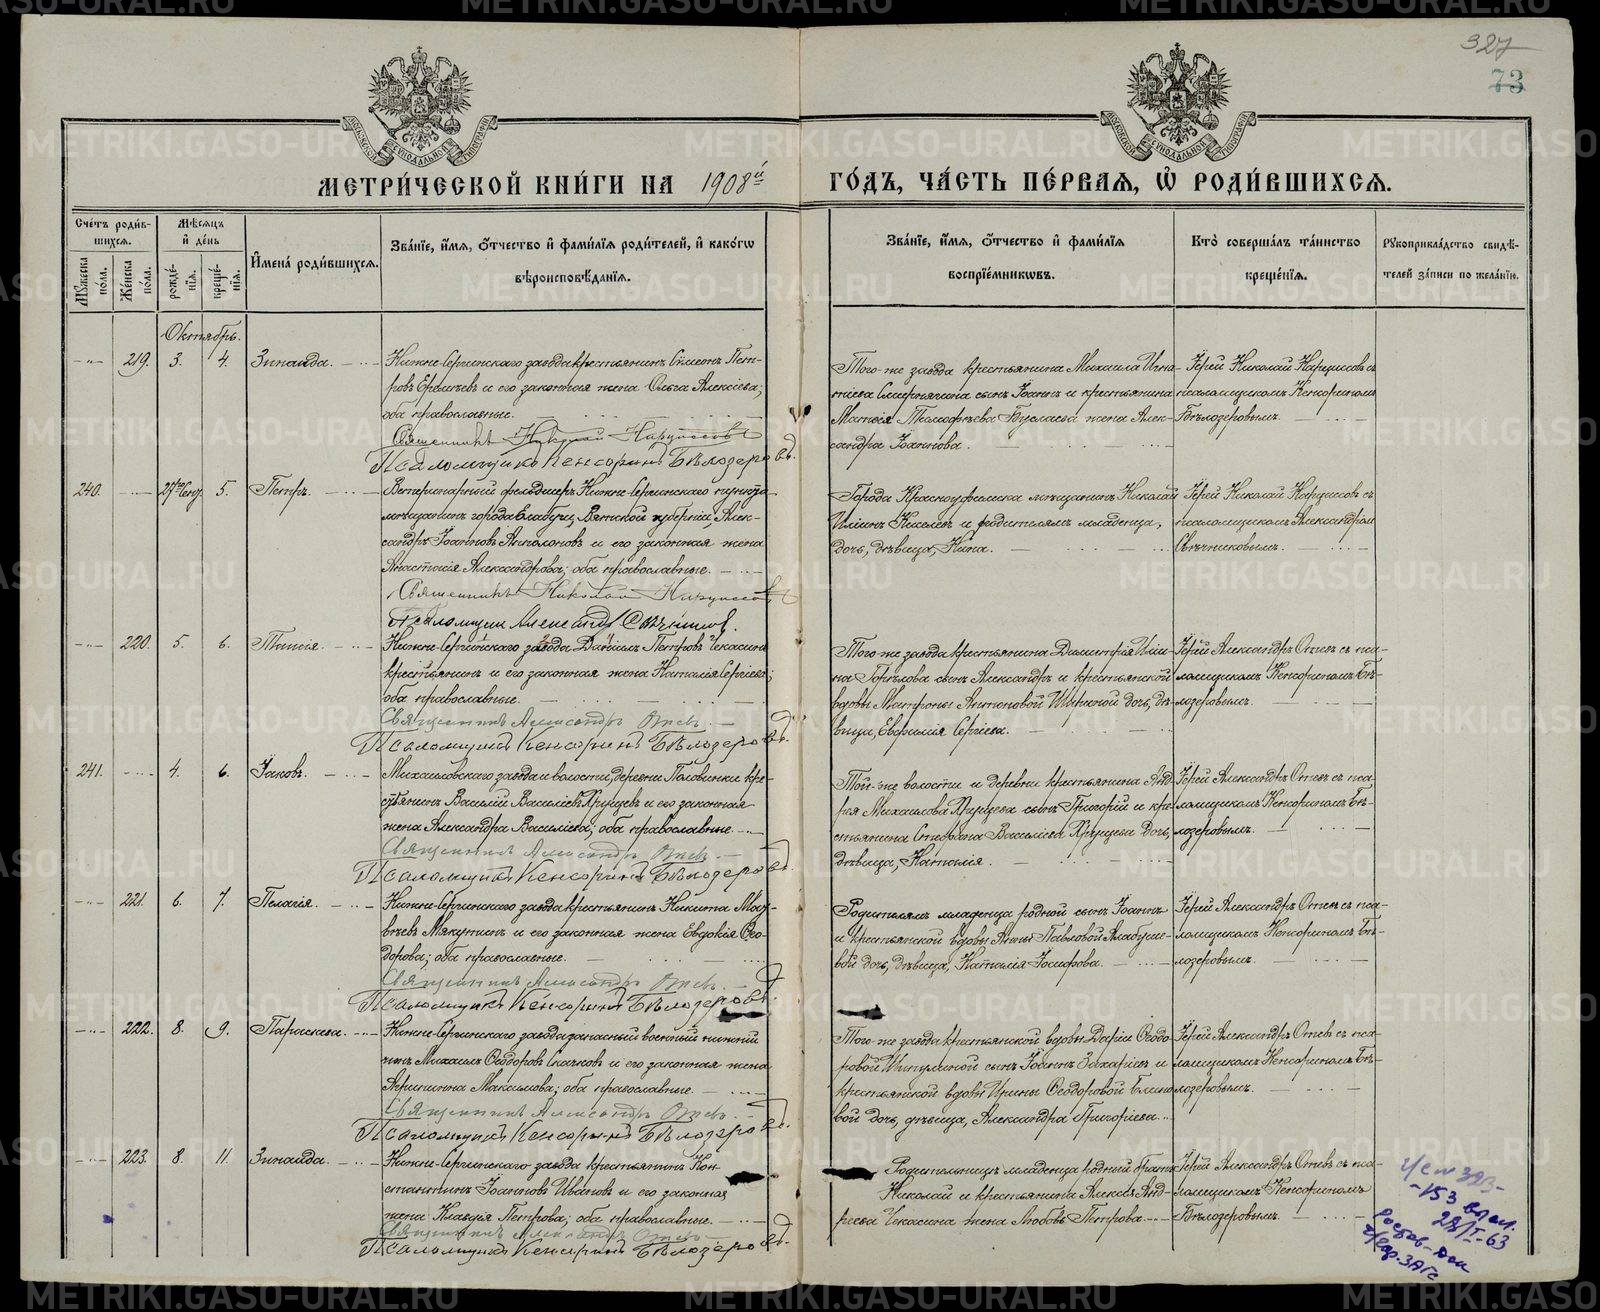 327
73
МЕТРИ́ЧЕСКОЙ КНИ́ГИ НА 1908й ГО́ДЪ, ЧА́СТЬ ПЕ́РВАЯ, Ѡ҆ РОДИ́ВШИХСЯ.
Сче́тъ роди́в-
шихся.
Мѣ́сяцъ
и҆ де́нь
Мꙋ́жеска по́ла.
Же́нска по́ла.
рожде́-нія.
креще́-нія.
И҆мена̀ роди́вшихся.
Зва́нїе, и҆́мя, ѻ҆́тчество и҆ фами́лїя роди́телей, и҆ како́гѡ
вѣроисповѣ́данїя.
Зва́нїе, и҆́мя, ѻ҆́тчество и҆ фами́лїя
воспрїе́мникѡвъ.
Кто̀ соверша́лъ та́инство
креще́нїя.
Рꙋкоприкла́дство свидѣ́-
телей за́писи по жела́нїю.
Октябрь.
219. 3. 4. Зинаида.
Нижне-Сергинскаго завода крестьянинъ Симеонъ Пет-
ровъ и его законная жена Ольга Алексіева;
оба православные.
Священникъ Николай Нарциссовъ
Псаломщикъ Кенсоринъ Бѣлозеровъ.
Того-же завода крестьянина Михаила Игна-
тіева сынъ Іоаннъ и крестьянина
Матвея Тимофѣева Бусласва жена Алек-
сандра Іоаннова.
Іерей Николай Нарциссовъ съ
псаломщикомъ Кенсориномъ
Бѣлозеровымъ.
240. 27го Сент. 5. Петръ.
Ветеринарный фельдшеръ Нижне-Сергинскаго пункта,
мѣщанинъ города Елабуги, Вятской губерніи, Алек-
сандръ Іоанновъ и его законная жена
Анастасія Александрова; оба православные.
Священникъ Николай Нарциссовъ
Псаломщик Александр Свѣчников.
Города Красноуфимска мѣщанинъ Николай
Ильинъ Киселевъ и родителямъ младенца,
дочь, дѣвица, Нина.
Іерей Николай Нарциссовъ съ
псаломщикомъ Александромъ
Свѣчниковымъ.
220. 5. 6. Таисія.
Нижне-Сергинскаго завода Даніилъ Петровъ Чекасинъ
крестьянинъ и его законная жена Наталія Сергіева;
оба православные.
Священникъ Александръ Отевъ.
Псаломщикъ Кенсоринъ Бѣлозеровъ.
Того-же завода крестьянина Димитрія Ильи-
на Горѣлова сынъ Александръ и крестьянской
вдовы Матроны Антоновой дочь, дѣ-
вица, Евфимія Сергіева.
Іерей Александръ Отевъ съ пса-
ломщикомъ Кенсориномъ Бѣ-
лозеровымъ.
241. 4. 6. Іаковъ.
Михайловскаго завода и волости, деревни Половинки кре-
стьянинъ Василій Василіевъ Хрущевъ и его законная
жена Александра Василіева; оба православные.
Священникъ Александръ Отевъ.
Псаломщикъ Кенсоринъ Бѣлозеровъ.
Той-же волости и деревни крестьянина Анд-
рея Михаилова Хрущева сынъ Григорій и кре-
стьянина Стефана Василіева Хрущева дочь,
дѣвица, Наталія.
Іерей Александръ Отевъ съ пса-
ломщикомъ Кенсориномъ Бѣ-
лозеровымъ.
221. 6. 7. Пелагія.
Нижне-Сергинскаго завода крестьянинъ Никита Мат-
вѣевъ Мякутинъ и его законная жена Евдокія Ѳео-
дорова; оба православные.
Священникъ Александръ Отевъ.
Псаломщикъ Кенсоринъ Бѣлозеровъ.
Родителямъ младенца родной сынъ Іоаннъ
и крестьянской вдовы Анны Павловой Алабуше-
вой дочь, дѣвица, Наталія Іосифова.
Іерей Александръ Отевъ съ пса-
ломщикомъ Кенсориномъ Бѣ-
лозеровымъ.
222. 8. 9. Параскева.
Нижне-Сергинскаго завода запасный военный нижній
чинъ Михаилъ Ѳеодоровъ и его законная жена
Агрипина Максимова; оба православные.
Священникъ Александръ Отевъ.
Псаломщикъ Кенсоринъ Бѣлозеровъ.
Того-же завода крестьянской вдовы Даріи Ѳеодо-
ровой сынъ Іоаннъ Захаріевъ и
крестьянской вдовы Ирины Ѳеодоровой Блино-
вой дочь, дѣвица, Александра Григоріева.
Іерей Александръ Отевъ съ пса-
ломщикомъ Кенсориномъ Бѣ-
лозеровымъ.
223. 8. 11. Зинаида.
Нижне-Сергинскаго завода крестьянинъ Кон-
стантинъ Іоанновъ Ивановъ и его законная
жена Клавдія Петрова; оба православные.
Священникъ Александръ Отевъ.
Псаломщикъ Кенсоринъ Бѣлозеровъ.
Родительницѣ младенца родной братъ
Николай и крестьянина Алексія Анд-
реева Чекасина жена Любовь Петрова.
Іерей Александръ Отевъ съ пса-
ломщикомъ Кенсориномъ
Бѣлозеровымъ.
-153
28/I-63
Ростов-Дон
METRIKI.GASO-URAL.RU